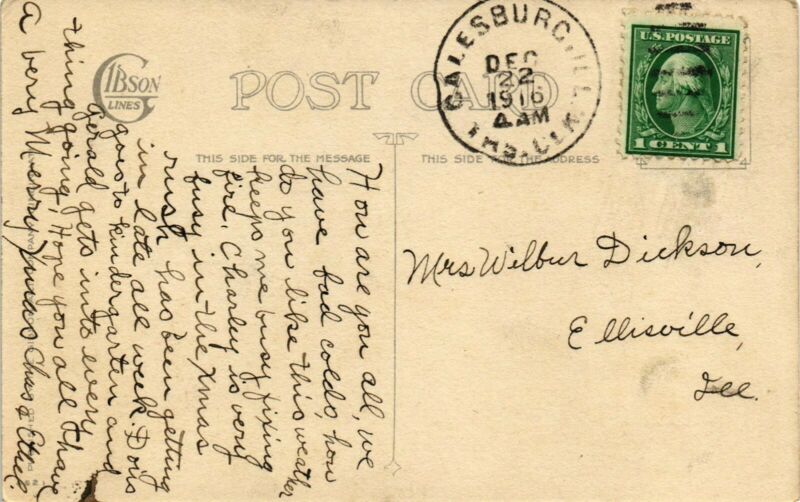 GIBSON
LINES
POST CARD
THIS SIDE FOR THE MESSAGE
THIS SIDE FOR THE ADDRESS
GALESBURG, ILL.
DEC
22
1916
4 AM
U.S. POSTAGE
1 CENT 1
Mrs Wilbur Dickson,
Ellisville,
Ill.
How are you all, we
have bad colds, how
do you like this weather
keeps me busy fixing
fire. Charley is very
busy in the Xmas
rush has been getting
in late all week. Doris
goes to kindergarten and
Gerald gets into every
thing going. Hope you all have
a very Merry Xmas Chas & Ethel